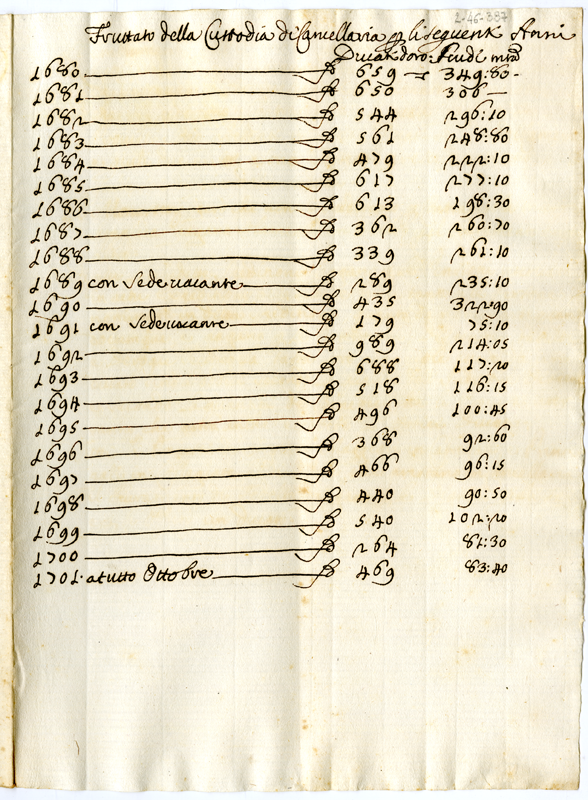 2-46-337
Fruttato della Custodia di Cancellaria p li seguenti Anni
Ducati d'oro: Scudi mta
1680 659 349:80
1681 650 308
1682 544 296:10
1683 561 248:80
1684 479 222:10
1685 617 277:10
1686 613 198:30
1687 362 260:70
1688 339 261:10
1689 con Sede vacante 289 235:10
1690 435 322:90
1691 con Sede vacante 179 75:10
1692 989 214:05
1693 688 117:20
1694 518 116:15
1695 496 100:45
1696 368 92:60
1697 466 96:15
1698 440 90:50
1699 540 102:20
1700 264 81:30
1701 a tutto Ottobre 469 83:40